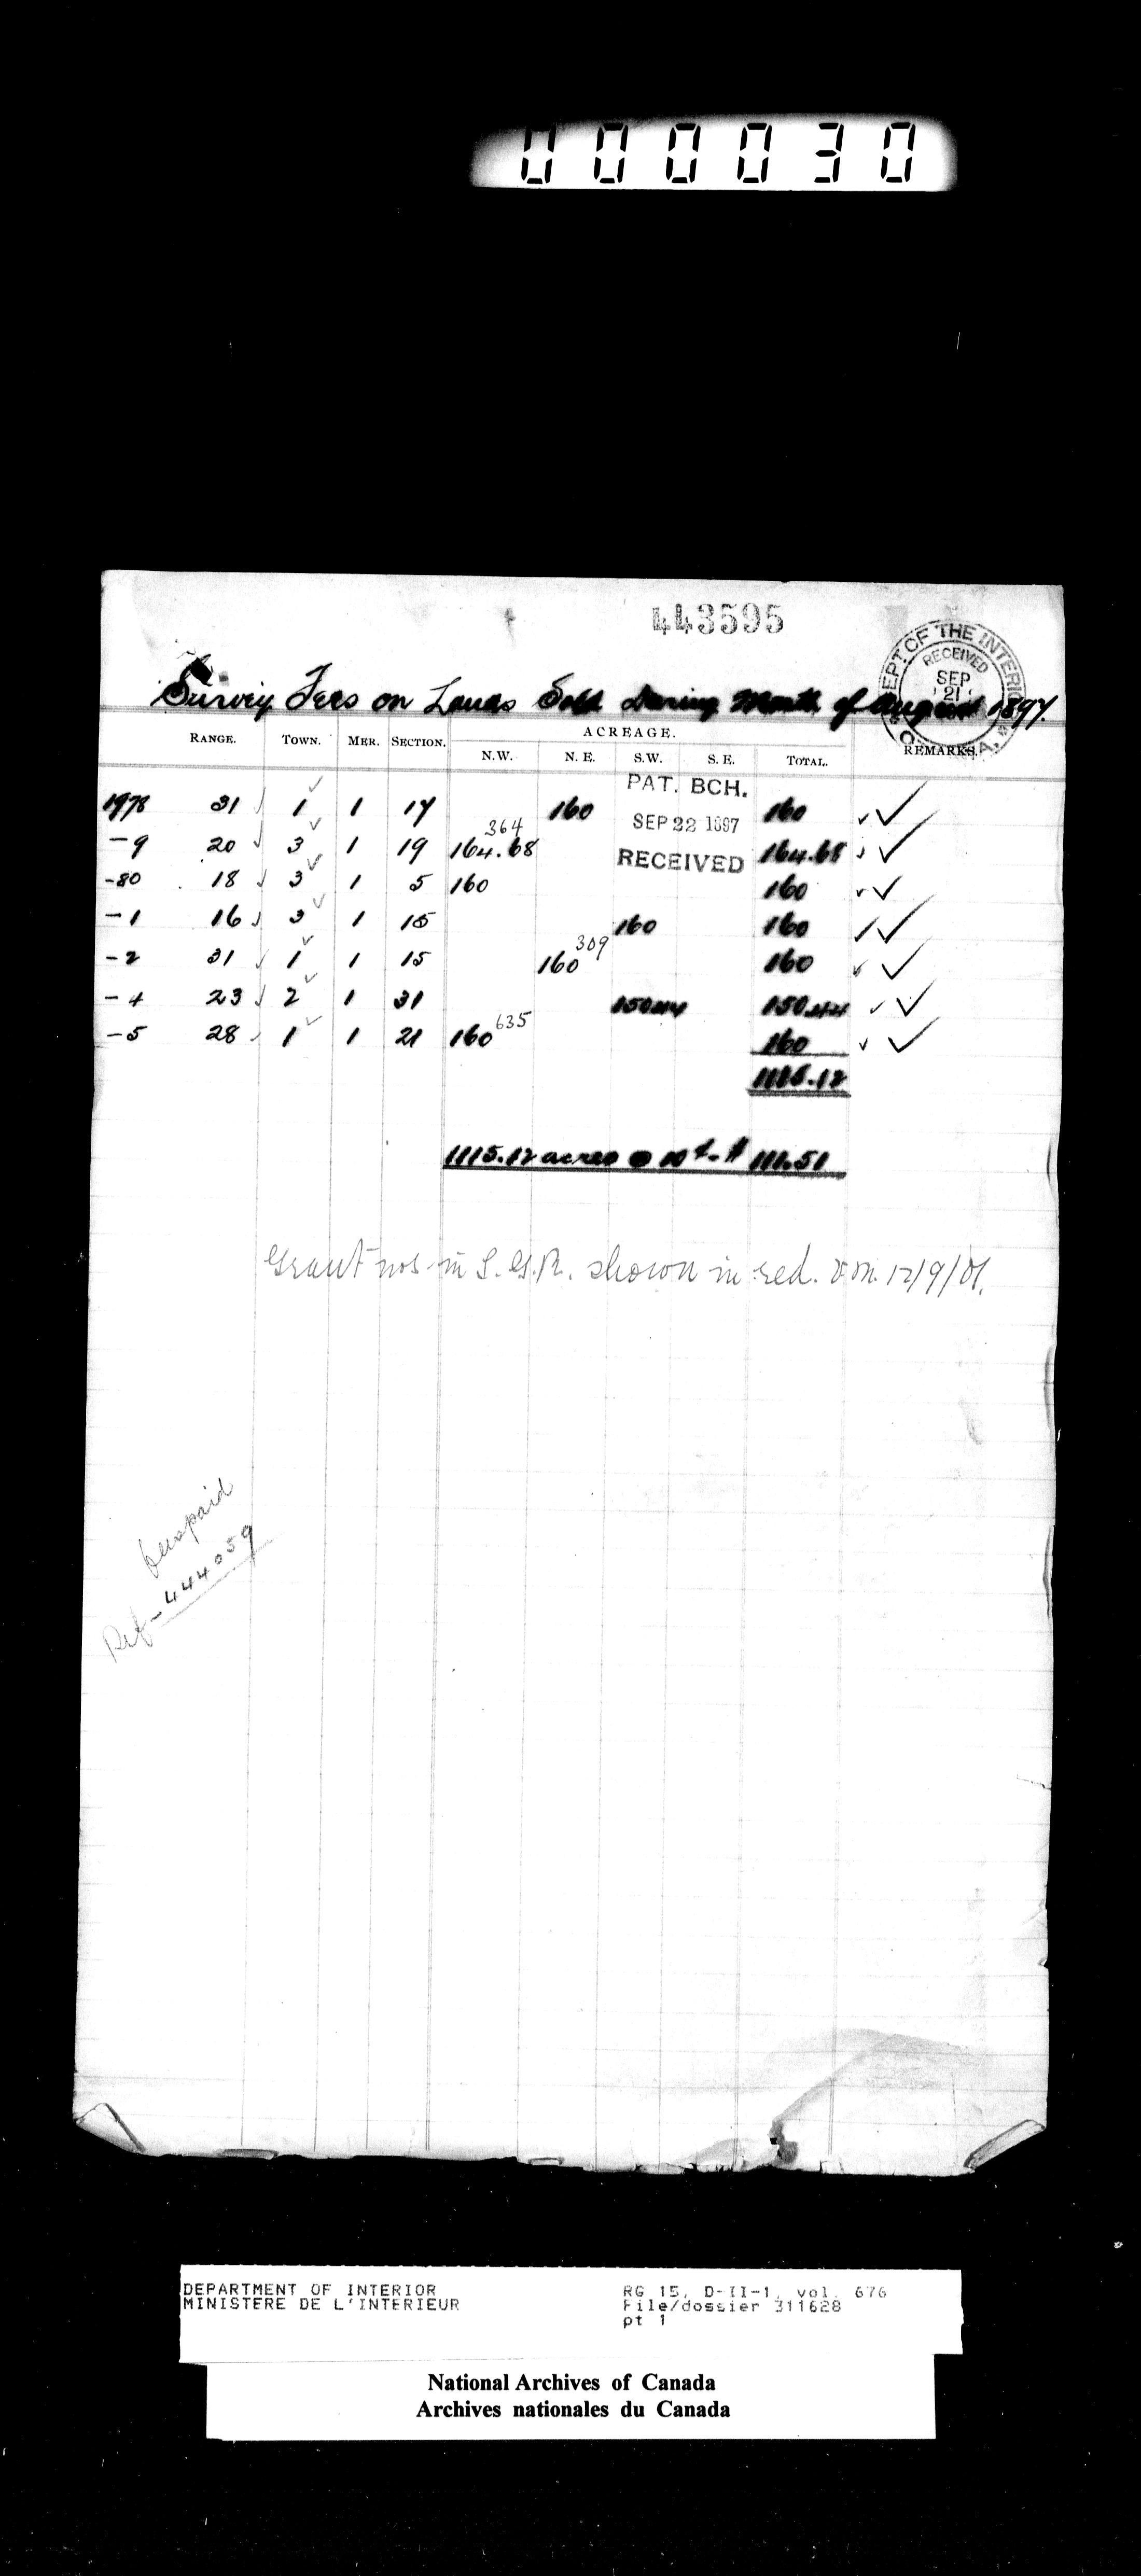 000030
443595
DEPT OF THE INTERIOR
RECEIVED
SEP
21
Survey Fees on Lands Sold During Month of August 1897.
RANGE. TOWN. MER. SECTION. ACREAGE. REMARKS.
N.W. N. E. S.W. S. E. TOTAL.
PAT. BCH.
SEP 22 1897
RECEIVED
1978 31 1 1 17 160 160
-9 20 3 1 19 164.68 364 164.68
-80 18 3 1 5 160 160
-1 16 3 1 15 160 160
-2 31 1 1 15 160 309 160
-4 23 2 1 31 150.44 150.44
-5 28 1 1 21 160 635 160
1115.12
1115.12 acres @ 10 ¢ - $ 111.51
Grant nos in L.G.R. shown in red. 12/9/01.
Ref - 444059
DEPARTMENT OF INTERIOR
MINISTERE DE L'INTERIEUR
RG 15, D-II-1, vol. 676
File/dossier 311628
pt 1
National Archives of Canada
Archives nationales du Canada